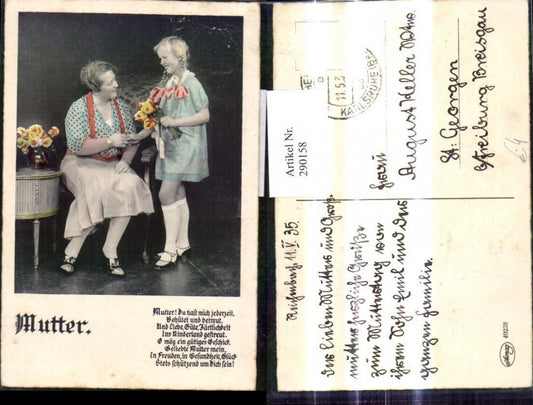 Mutter.
Mutter! Du hast mich jederzeit
Behütet und betreut,
Und Liebe, Güte, Zärtlichkeit
Ins Kinderland gestreut.
O mög ein gütiges Geschick,
Geliebte Mutter mein,
In Freuden, in Gesundheit, Glück
Stets schützend um Dich sein!
Artikel Nr.
290158
11.5.3
KARLSRUHE (B
Frau
August Keller Wtw.
St: Georgen
Freiburg Breisgau
11. V. 35.
der lieben Mutter und Groß-
mutter herzliche Grüße
zum Muttertag von
ihrem Sohn Emil und der
ganzen Familie.